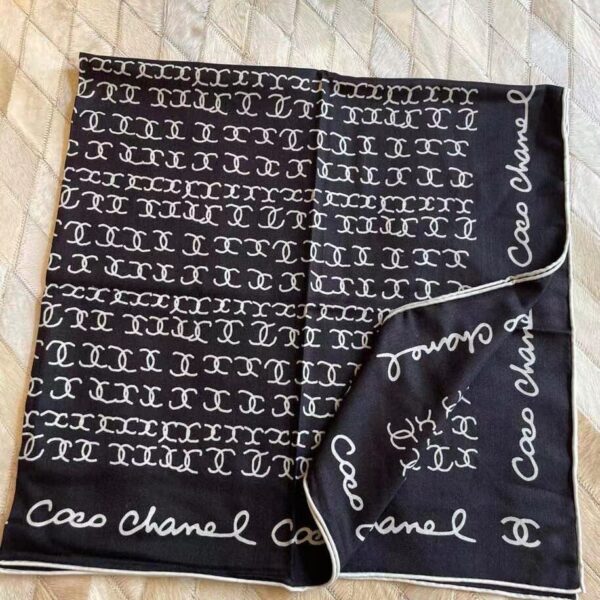 Coco Chanel
Coco Chanel
Coco Chanel
Coco Chanel
Coco Chanel